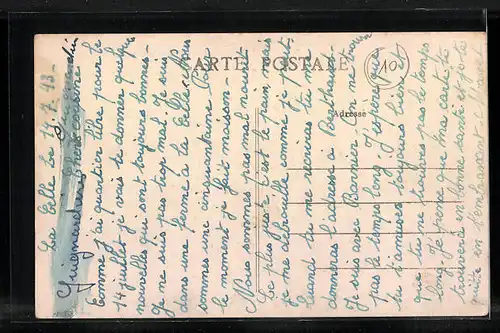 CARTE POSTALE
Adresse
10
La Celle le 14.7.13.
Chère cousine
Comme j'ai quartier libre pour le
14 juillet je vais te donner quelque
nouvelles qui sont toujours bonnes.
Je ne suis pas trop mal. Je suis
dans une ferme à la Celle. Nous
sommes une cinquantaine. Pour
le moment je fait maison.
Nous sommes pas mal nourri
Le plus juste c'est le pain mais
je me débrouille comme je peut.
Quand tu me
donneras l'adresse à
Je suis avec Bannier. On ne trouve
pas le temps long. J'espère que
tu t'amuses toujours bien et
que tu ne trouves pas le temps
long. Je pense que ma carte te
trouvera en bonne santé et forte
en t'embrassant